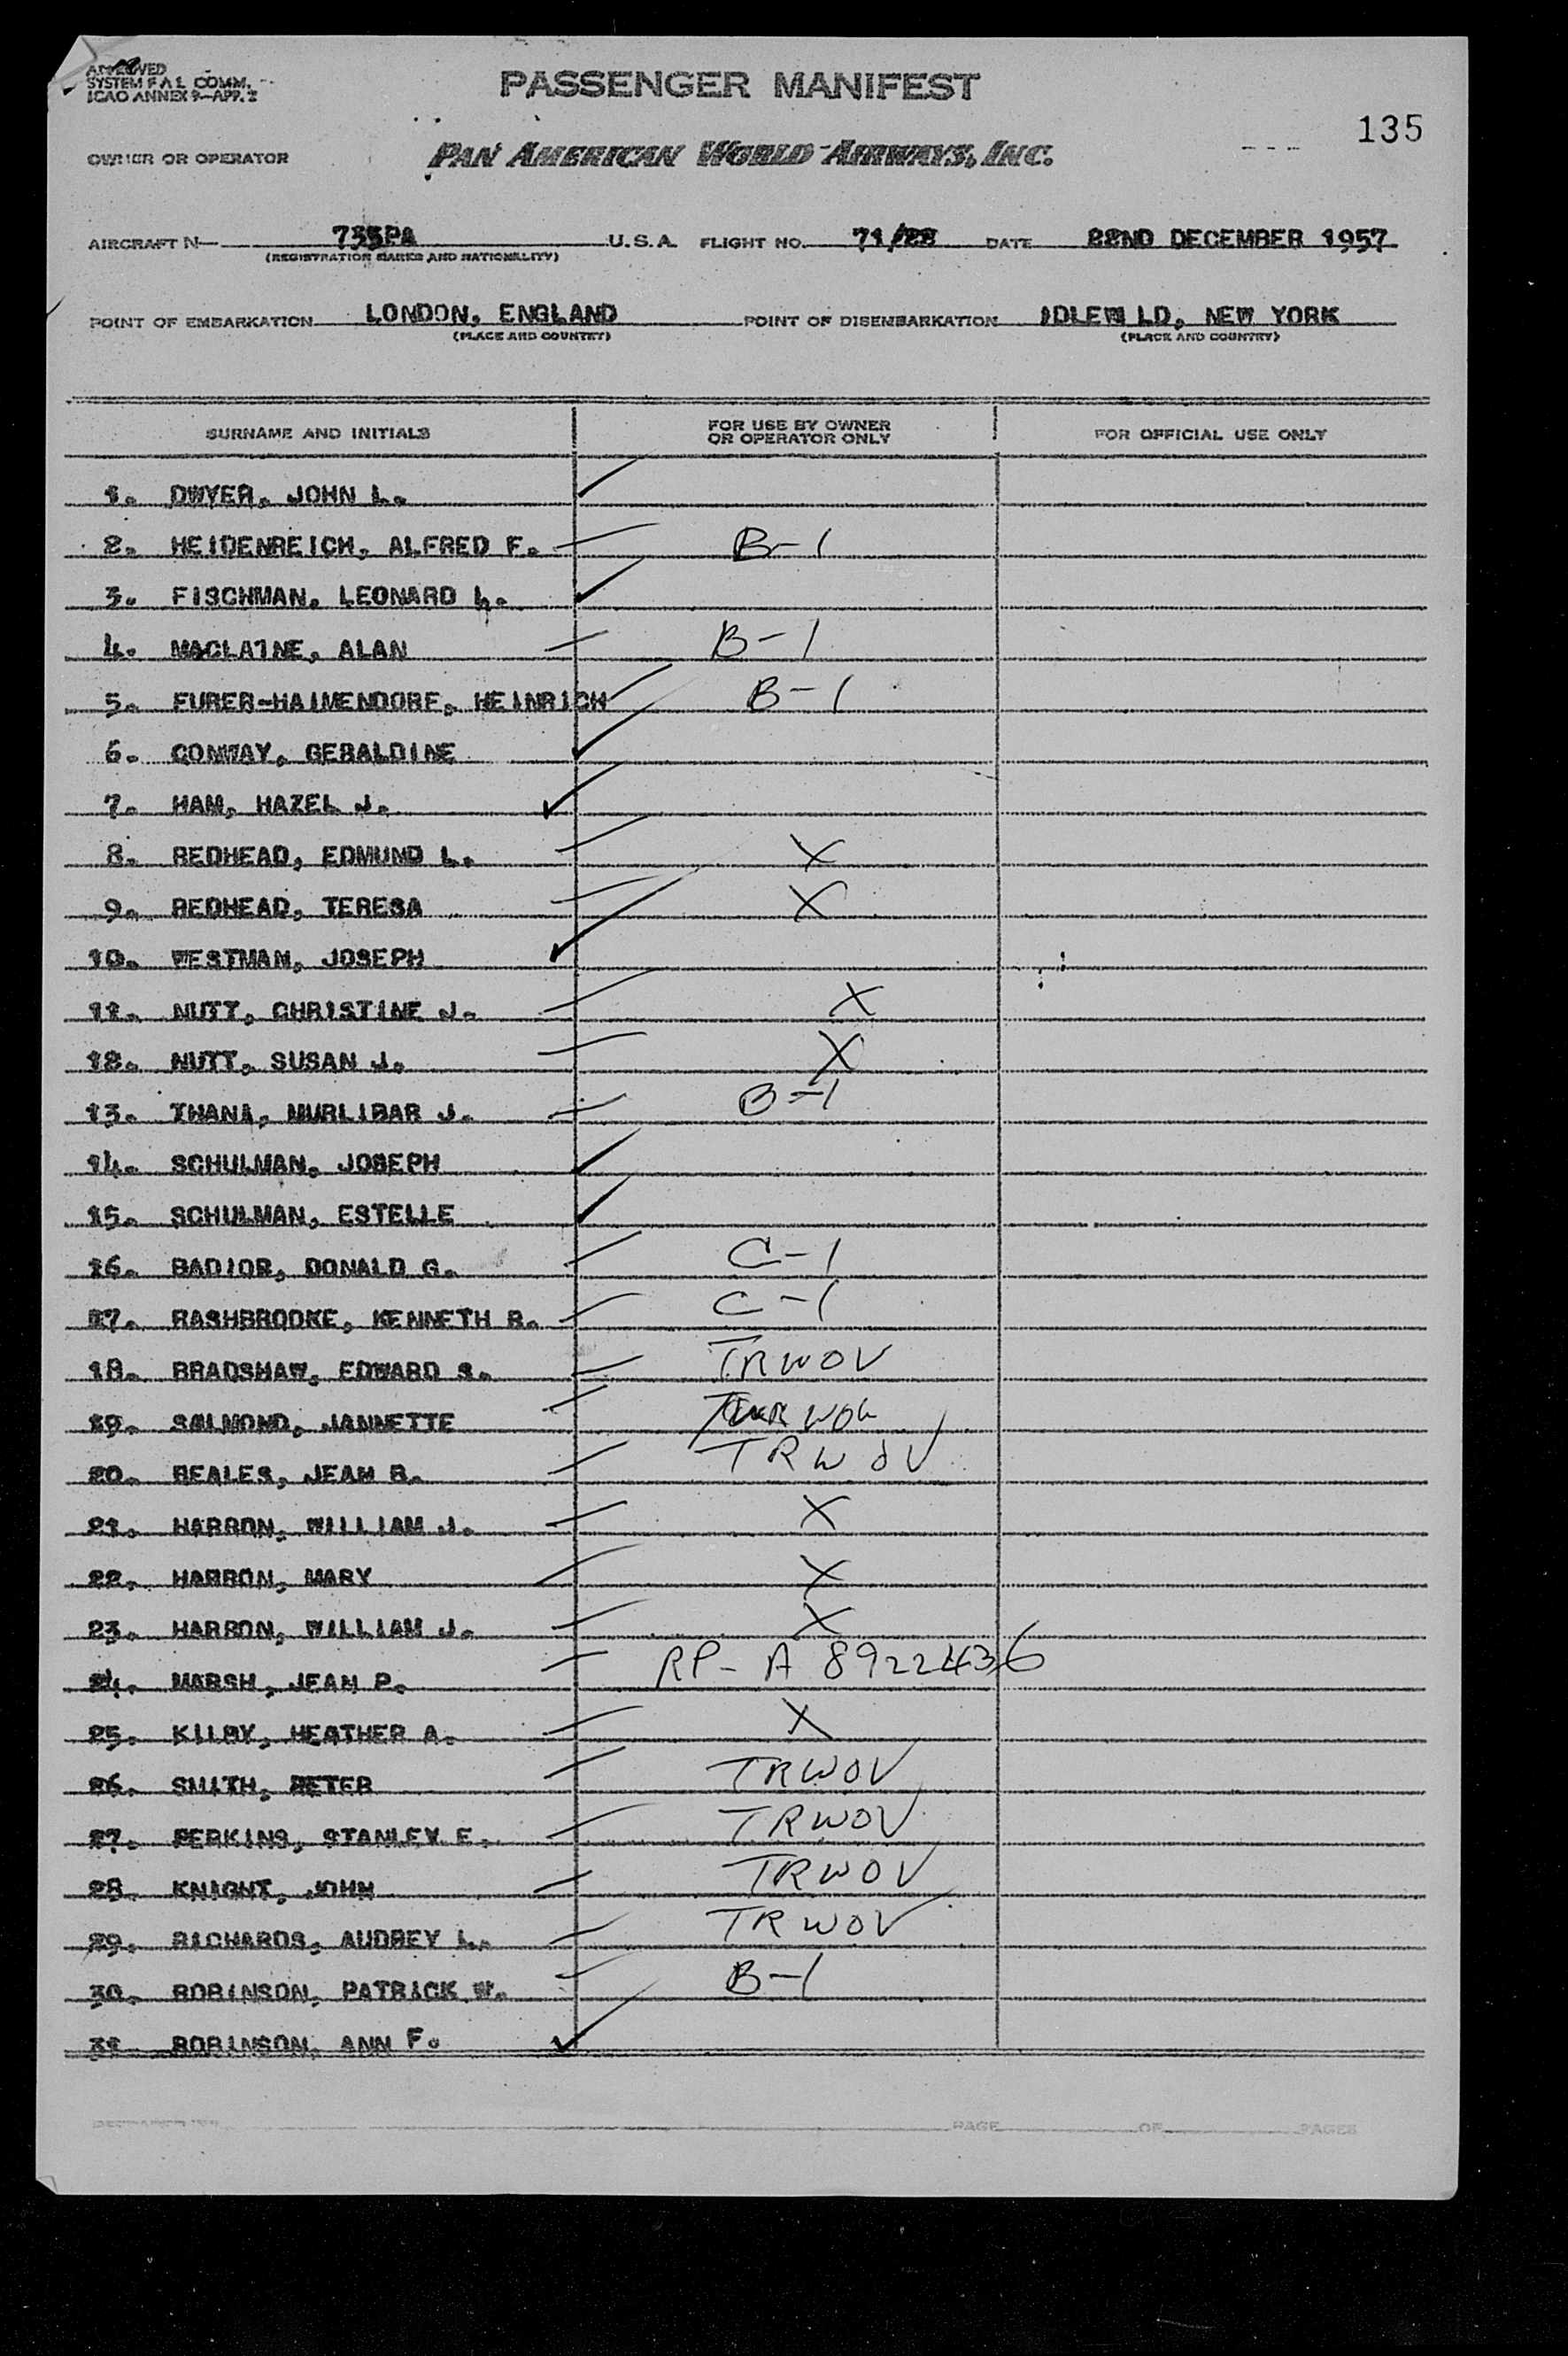 APPROVED
SYSTEM F A L COMM.
ICAO ANNEX 9-APP. 2
PASSENGER MANIFEST
135
OWNER OR OPERATOR PAN AMERICAN WORLD AIRWAYS, INC.
AIRCRAFT N- 735PA U.S.A. FLIGHT NO. 71/22 DATE 22ND DECEMBER 1957
(REGISTRATION MARKS AND NATIONALITY)
POINT OF EMBARKATION LONDON, ENGLAND POINT OF DISEMBARKATION IDLEW LD, NEW YORK
(PLACE AND COUNTRY) (PLACE AND COUNTRY)
SURNAME AND INITIALS FOR USE BY OWNER OR OPERATOR ONLY FOR OFFICIAL USE ONLY
1. DWYER, JOHN L.
2. HEIDENREICH, ALFRED F. B-1
3. FISCHMAN, LEONARD L.
4. MACLAINE, ALAN B-1
5. FURER-HAIMENDORF, HEINRICH B-1
6. CONWAY, GERALDINE
7. HAM, HAZEL J.
8. REDHEAD, EDMUND L. X
9. REDHEAD, TERESA X
10. WESTMAN, JOSEPH
11. NUTT, CHRISTINE J. X
12. NUTT, SUSAN J. X
13. THANI, MURLIBAR J. B-1
14. SCHULMAN, JOSEPH
15. SCHULMAN, ESTELLE
16. BADIOR, DONALD G. C-1
17. RASHBROOKE, KENNETH R. C-1
18. BRADSHAW, EDWARD S. TRWOV
19. SALMOND, JANNETTE
20. BEALES, JEAN B. TRWOV
21. HARRON, WILLIAM J. X
22. HARRON, MARY X
23. HARRON, WILLIAM J. X
24. MARSH, JEAN P. RP- A 8922436
25. KILBY, HEATHER A. X
26. SMITH, PETER TRWOV
27. PERKINS, STANLEY E. TRWOV
28. KNIGHT, JOHN TRWOV
29. RICHARDS, AUDREY L. TRWOV
30. ROBINSON, PATRICK W. B-1
31. ROBINSON, ANN F.
PAGE OF PAGES